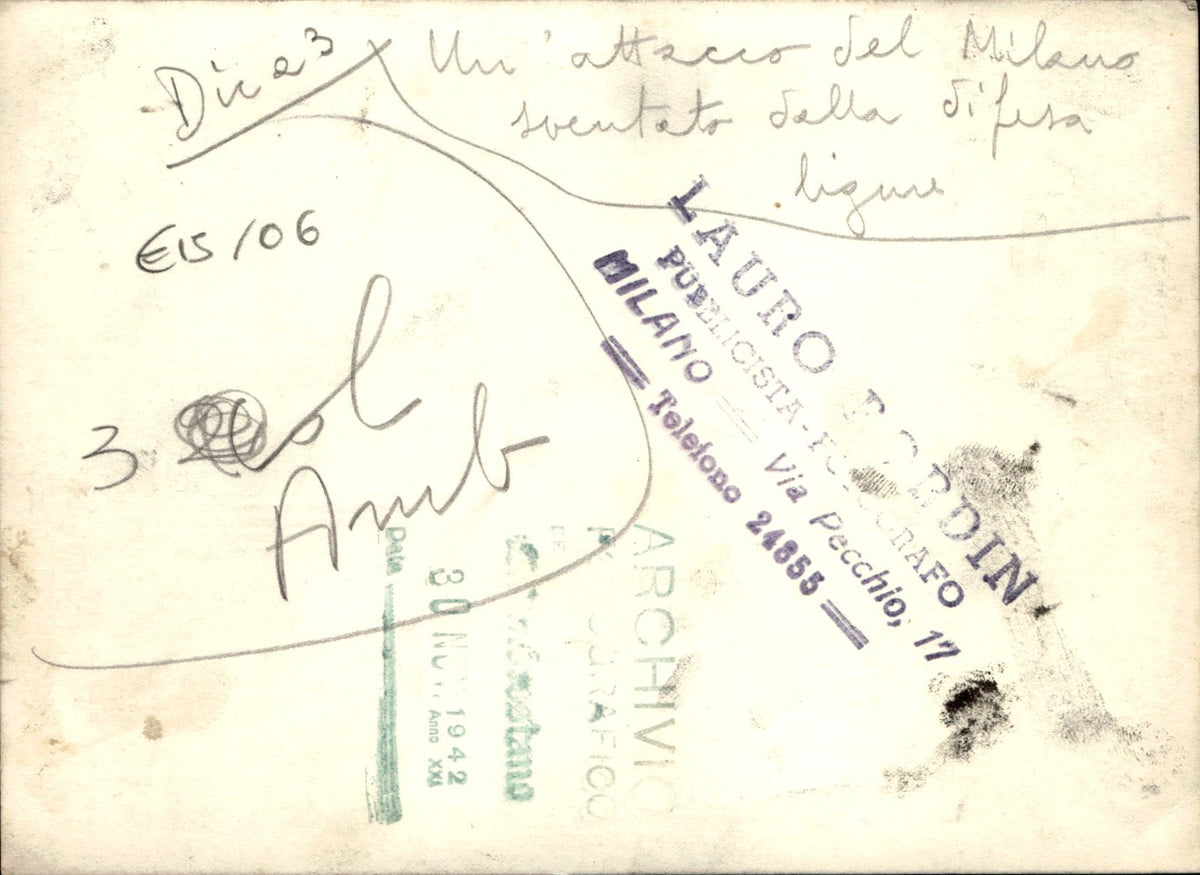 Un' attacco del Milano
sventato dalla difesa
ligure
E15/06
3 col
Amb
LAURO BORDIN
PUBBLICISTA-FOTOGRAFO
MILANO = Via Pecchio, 17
= Telefono 24855 =
ARCHIVIO
FOTOGRAFICO
Data 30 NOV. 1942
Anno XXI